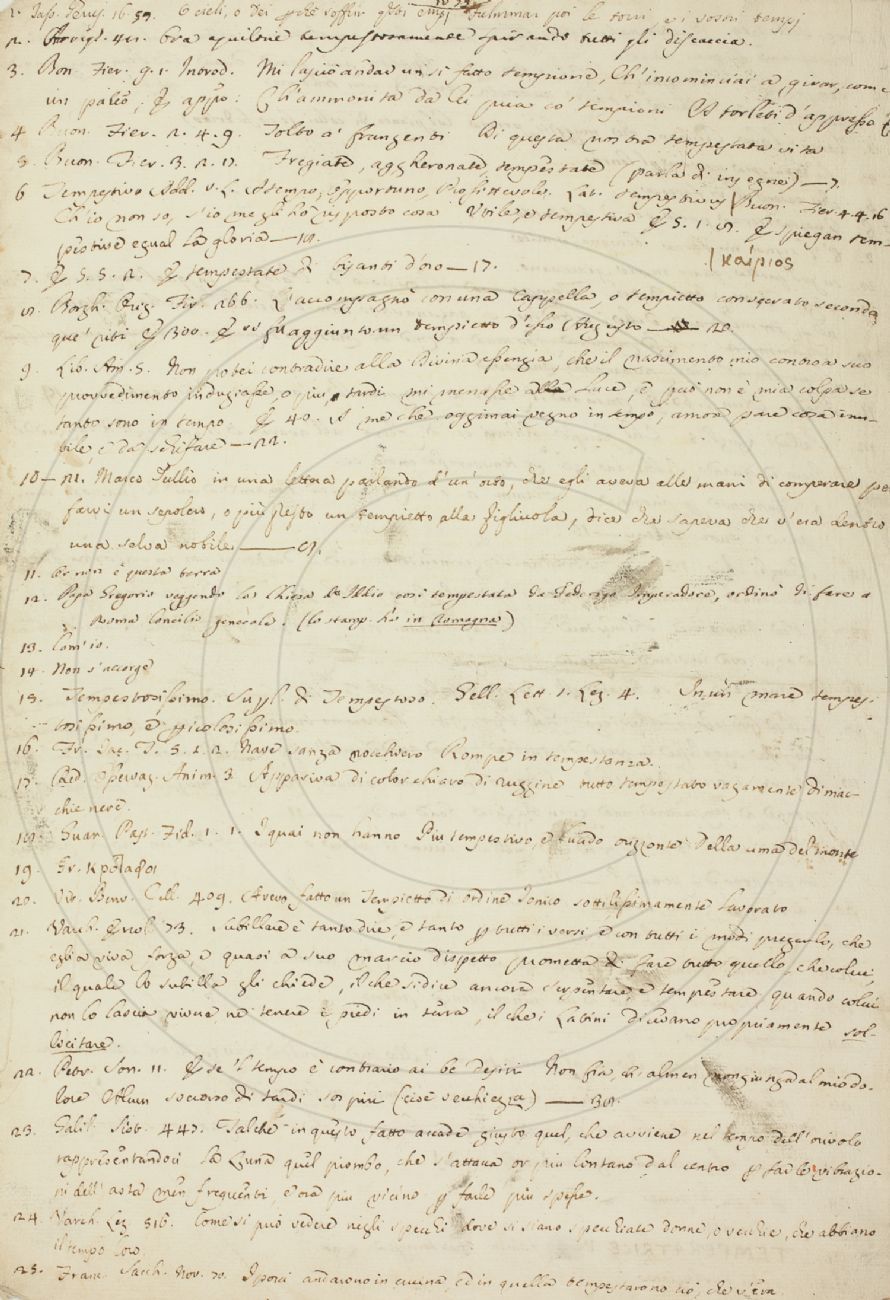 1. Tass. Gerus. 16. 59. O cieli, o Dei perchè soffrir questi empj Fulminar poi le torri, e i vostri tempj
2. Arrigh. 41. Ora aquilone tempestosamente spirando tutti gli discaccia.
3. Bon. Fier. 9. 1. Introd. Mi lasciò andar un sì fatto tempione, Ch'incominciai a girar, come
un paleo, E appo: Ch'ammonita da lei pria co' tempioni
4 Buon. Fier. 2. 4. 9. Tolto a' frangenti Di questa nostra tempestata vita
5. Buon. Fier. 3. 2. 17. Fregiate, aggheronate, tempestate (parla di insegne)
6 Tempestivo Add. V. L. A tempo, Opportuno, Profittevole. Lat. tempestivus Buon. Fier. 4. 4. 16
Ch'io non so, s'io me gli ho risposto cosa Utile, e tempestiva E 5. 1. 8. E spiegan tem-
pestive egual la gloria — 18.
| καίριος
7. E 5. 5. 2. E tempestate di bisanti d'oro — 17.
8. Borgh. Orig. Fir. 166. L'accompagnò con una Cappella, o tempietto consegrato secondo
que' riti E 300. E vi fu aggiunto un tempietto d'esso Augusto — 20.
9. Lib. Am. 5. Non potei contradire alla Divina essenzia, che il nascimento mio contra a suo
provvedimento indugiasse, o più tardi mi menasse alla luce, e però non è mia colpa se
tanto sono in tempo. E 40. A me che oggimai vegno in tempo, amor pare cosa inu-
bile, e da schifare — 22.
10 — 21. Marco Tullio in una lettera parlando d'un orto, che egli aveva alle mani di comperare per
farvi un sepolcro, o più presto un tempietto alla figliuola, dice che sapeva che v'era dentro
una selva nobile — 8.
11. Or non è questa terra
12. Papa Gregorio veggendo la Chiesa di Iddio così tempestata da Federigo Imperadore, ordinò di fare a
Roma Concilio generale. (lo stamp. ha in Romagna)
13. Com'io.
14. Non s'accorge
15. Tempestosissimo. Superl. di Tempestoso. Gell. Lett. 1. Lez. 4. In un mare tempes-
tosissimo, e pericolosissimo.
16. Fr. Iac. T. 5. 1. 2. Nave sanza nocchiero Rompe in tempestanza.
17. Red. Osservaz. Anim. 3 Appariva di color chiaro di ruggine tutto tempestato vagamente di mac-
chie nere.
18. Guar. Past. Fid. 1. 1. I quai non hanno Più tempestivo, e
19. Gr.
20. Vit. Benv. Cell. 409. Avevo fatto un Tempietto di ordine Ionico sottilissimamente lavorato
21. Varch. Ercol. 73. Subillare è tanto dire, e tanto per tutti i versi, e con tutti i modi pregarlo, che
egli a viva forza, e quasi a suo marcio dispetto prometta di fare tutto quello, che colui,
il quale lo subilla gli chiede, il che si dice ancora serpentare, e tempestare quando colui
non lo lascia vivere nè tenere i piedi in terra, il che i Latini dicevano propriamente sol-
licitare.
22. Petr. Son. 11. E se 'l tempo è contrario ai be' desiri Non fia ch'almen non giunga al mio do-
lore Alcun soccorso di tardi sospiri (cioè vecchiezza) — 38.
23. Galil. Sist. 447. Talchè in questo fatto accade giusto quel, che avviene nel tempo dell'orivolo
rappresentandoci la Luna quel piombo, che s'attacca or più lontano dal centro per far le vibrazio-
ni dell'asta men frequenti, e ora più vicino per farle più spesse.
24. Varch. Lez. 316. Come si può vedere negli specchi dove si siano specchiate donne, o vecchie, che abbiano
il tempo loro.
25. Franc. Sacch. Nov. 70. I porci andarono in cucina, ed in quella tempestarono ciò, che v'era.